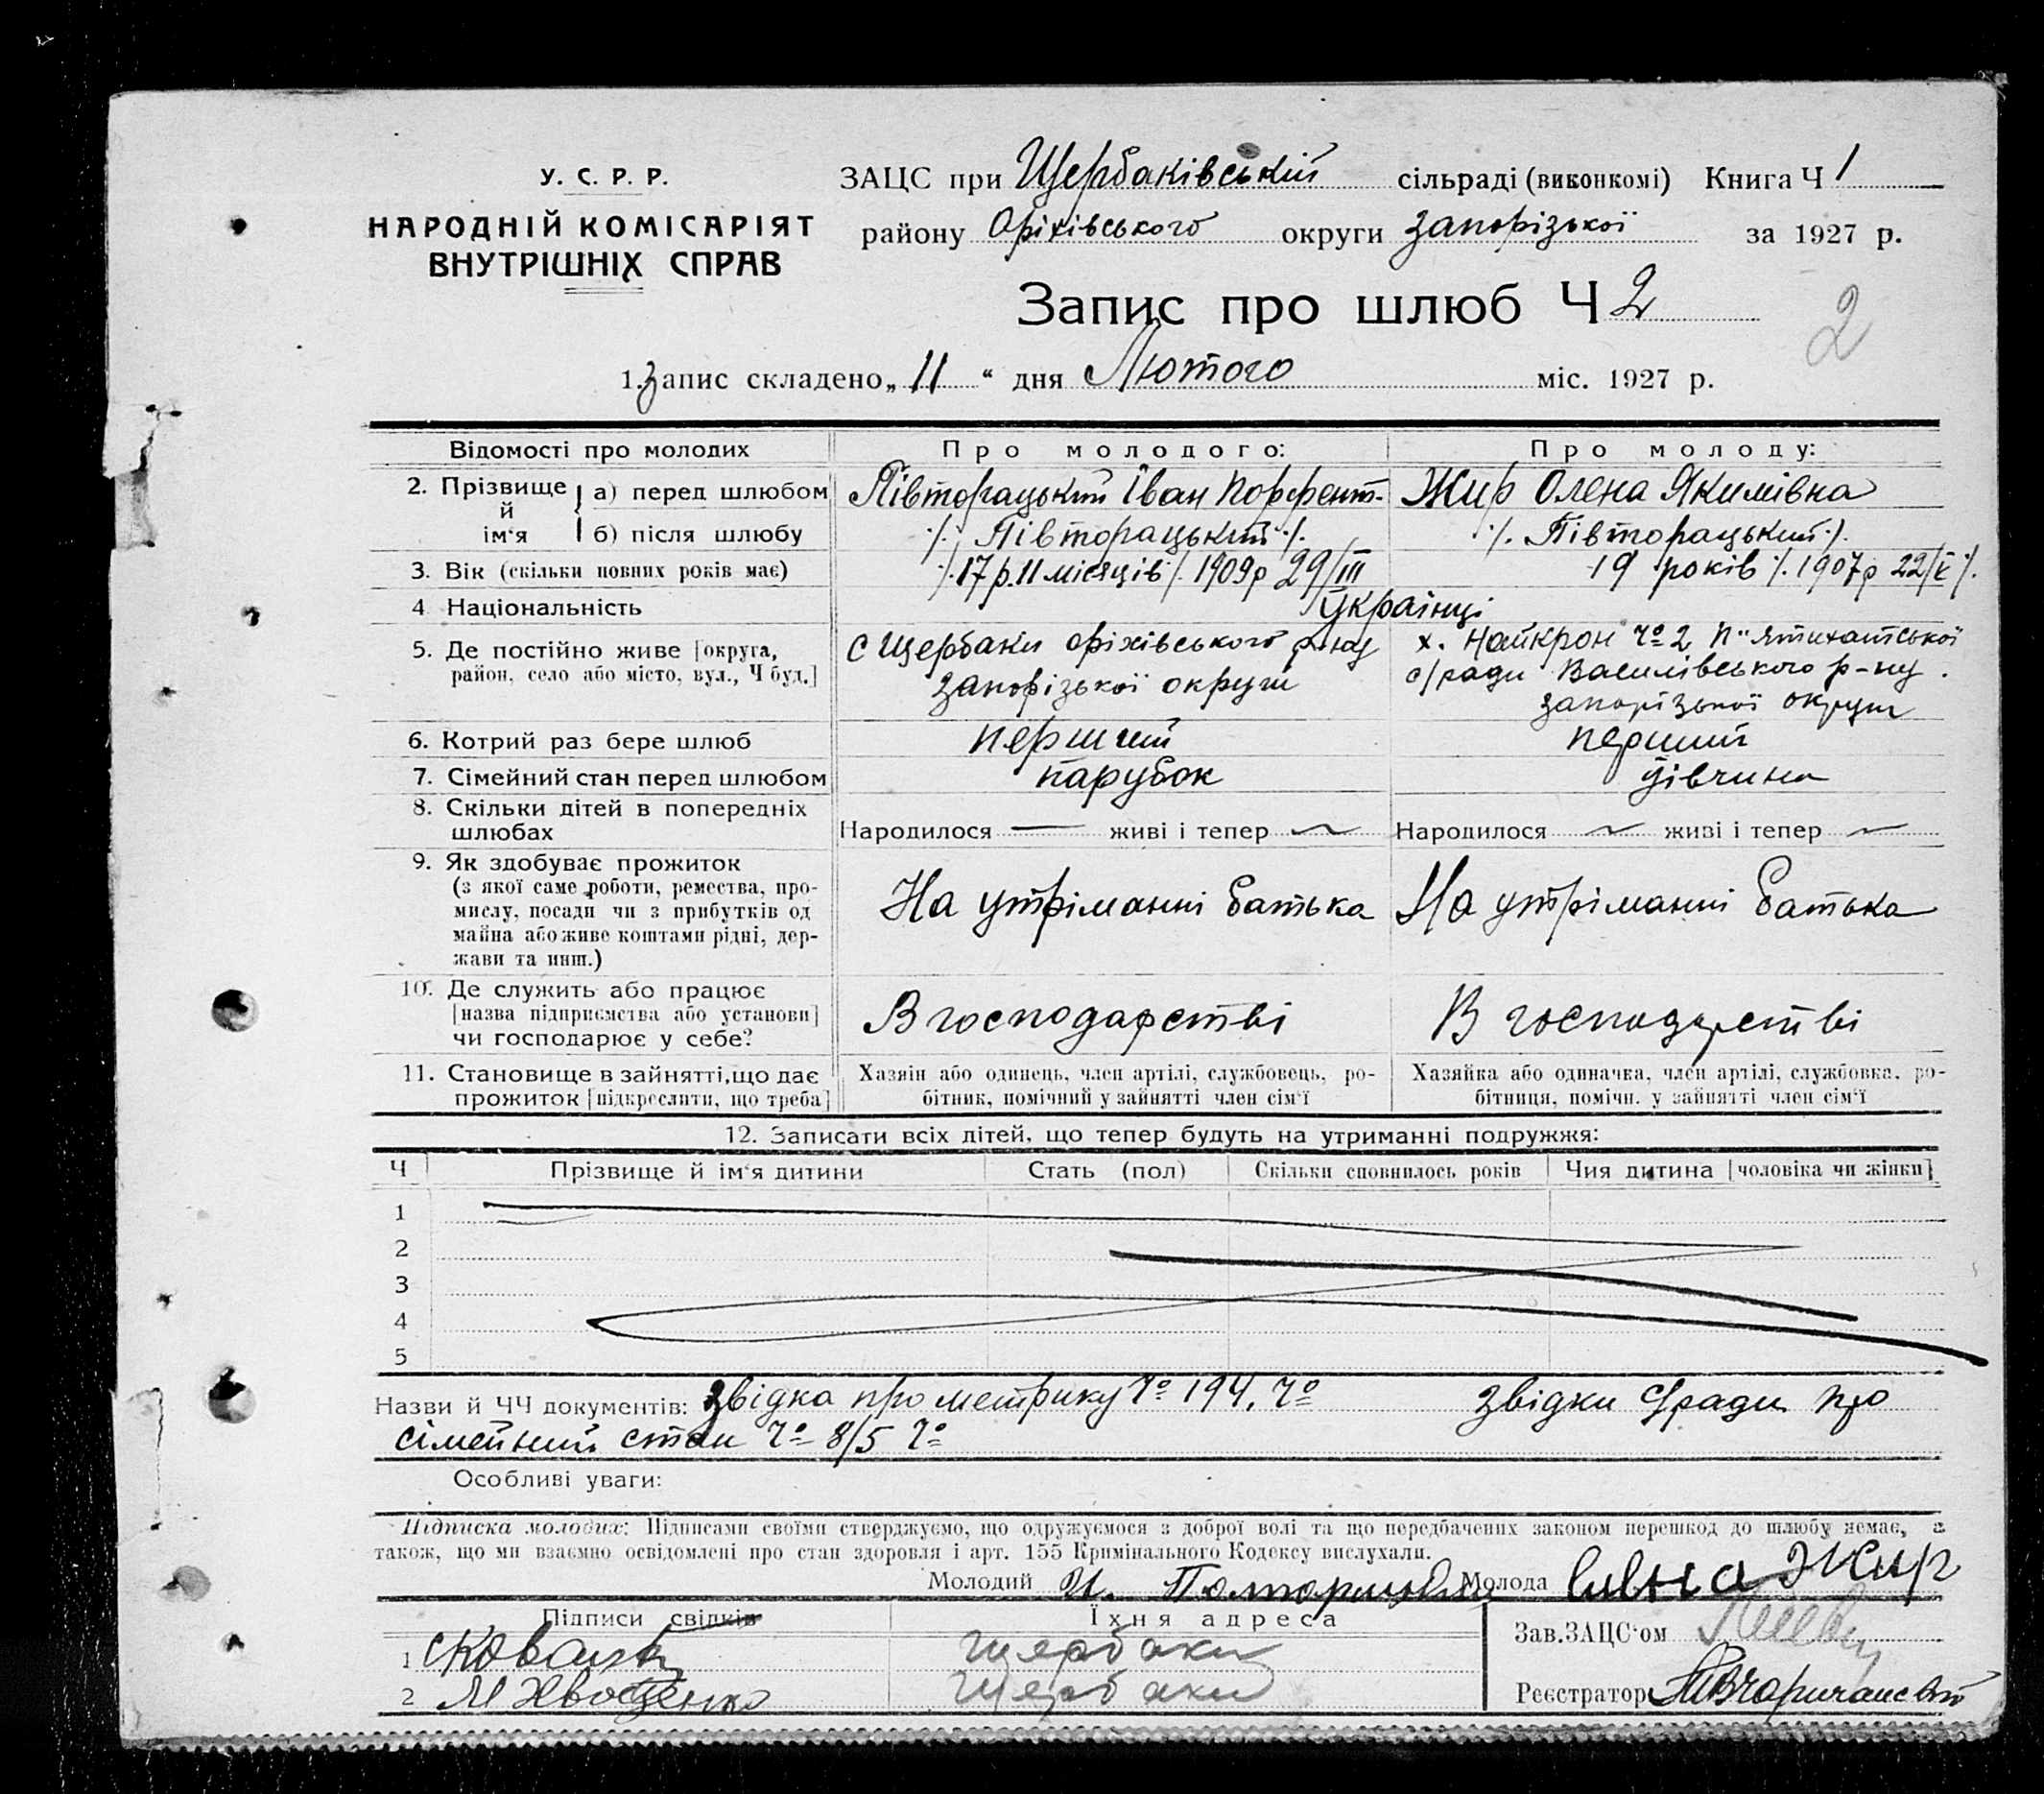 У. С. Р. Р.
НАРОДНІЙ КОМІСАРІЯТ
ВНУТРІШНІХ СПРАВ
ЗАЦС при Щербаківський сільраді (виконкомі) Книга Ч 1
району Оріхівського округи Запорізької за 1927 р.
Запис про шлюб Ч 2
2
1. Запис складено „ 11 “ дня Лютого міс. 1927 р.
Відомості про молодих Про молодого: Про молоду:
2. Прізвище й ім‘я а) перед шлюбом Півторацький Іван Жир Олена Якимівна
б) після шлюбу ·/. Півторацький ·/. ·/. Півторацький ·/.
3. Вік (скільки повних років має) ·/. 17 р. 11 місяців ·/. 1909 р 29/III 19 років ·/. 1907 р 22/V ·/.
4 Національність Українці
5. Де постійно живе [округа, район, село або місто, вул., Ч буд.]
с Щербаки Оріхівського р-ну
Запорізької округи
х. Найкрон Ч⁰ 2 П"ятихатської
с/ради Василівського р-ну
Запорізької округи
6. Котрий раз бере шлюб перший перший
7. Сімейний стан перед шлюбом парубок дівчина
8. Скільки дітей в попередніх
шлюбах Народилося — живі і тепер ~ Народилося ~ живі і тепер ~
9. Як здобуває прожиток
(з якої саме роботи, ремества, про-
мислу, посади чи з прибутків од На утріманні батька На утріманні батька
майна або живе коштами рідні, дер-
жави та инш.)
10. Де служить або працює
[назва підприємства або установи] В господарстві В господарстві
чи господарює у себе?
11. Становище в зайнятті, що дає Хазяїн або одинець, член артілі, службовець, ро- Хазяйка або одиначка, член артілі, службовка, ро-
прожиток [підкреслити, що треба] бітник, помічний у зайнятті член сім‘ї бітниця, помічн. у зайнятті член сім‘ї
12. Записати всіх дітей, що тепер будуть на утриманні подружжя:
Ч Прізвище й ім‘я дитини Стать (пол) Скільки сповнилось років Чия дитина [чоловіка чи жінки]
1
2
3
4
5
Назви й ЧЧ документів: Звідка про метрику Ч⁰ 194, Ч⁰ Звідки С/ради про
сімейний стан Ч⁰ 8/5 Ч⁰
Особливі уваги:
Підписка молодих: Підписами своїми стверджуємо, що одружуємося з доброї волі та що передбачених законом перешкод до шлюбу немає, а
також, що ми взаємно освідомлені про стан здоровля і арт. 155 Кримінального Кодексу вислухали.
Молодий И. Молода Жир
Підписи свідків Їхня адреса
Зав.ЗАЦС‘ом
1 Щербаки
2 М Хвощенко Щербаки
Реєстратор